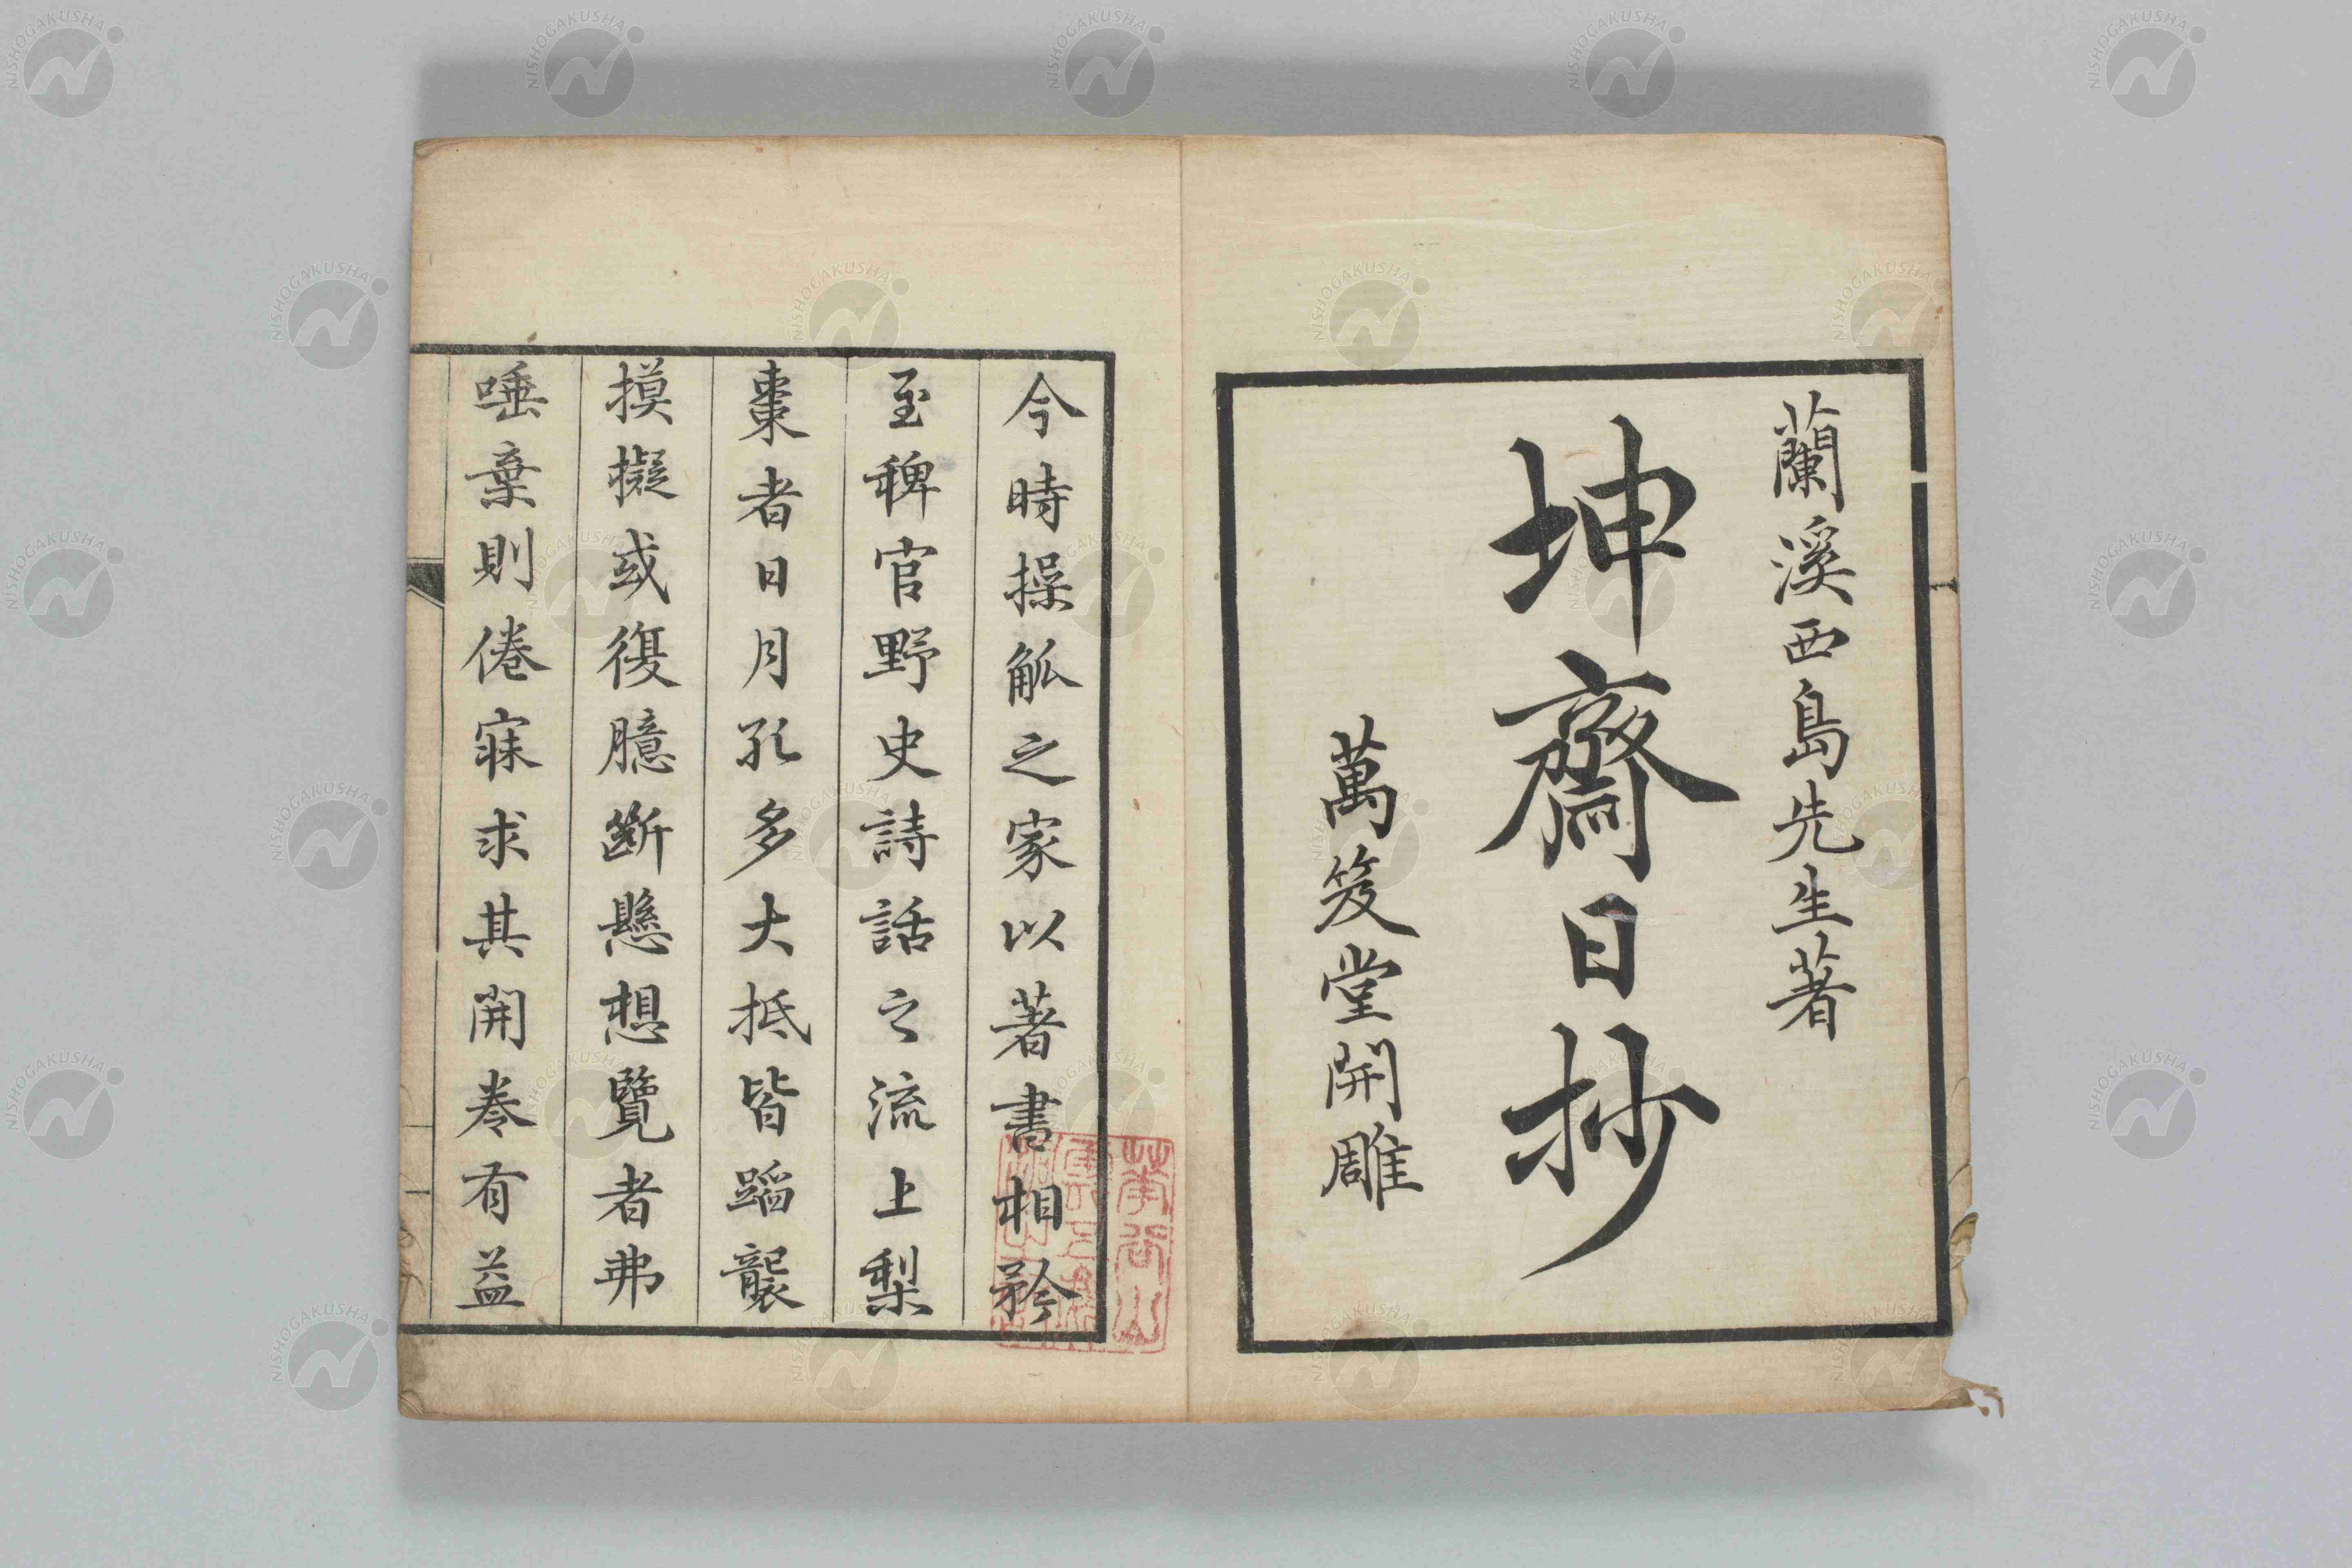 蘭溪西島先生著
坤齋日抄
萬笈堂開雕
今時操觚之家以著書相矜
至稗官野史詩話之流上梨
棗者日月孔多大抵皆蹈襲
摸擬或復臆斷懸想覽者弗
唾棄則倦寐求其開卷有益
NISHOGAKUSHA